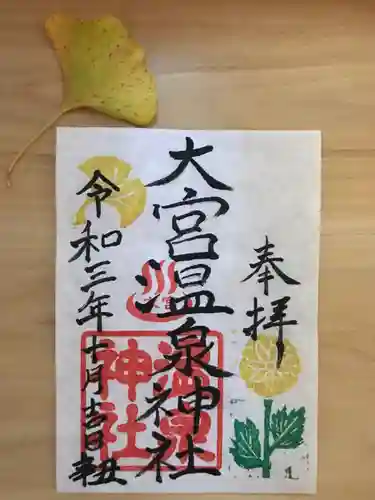 奉拝
大宮温泉神社
令和三年十月吉日
辛丑
温泉
神社